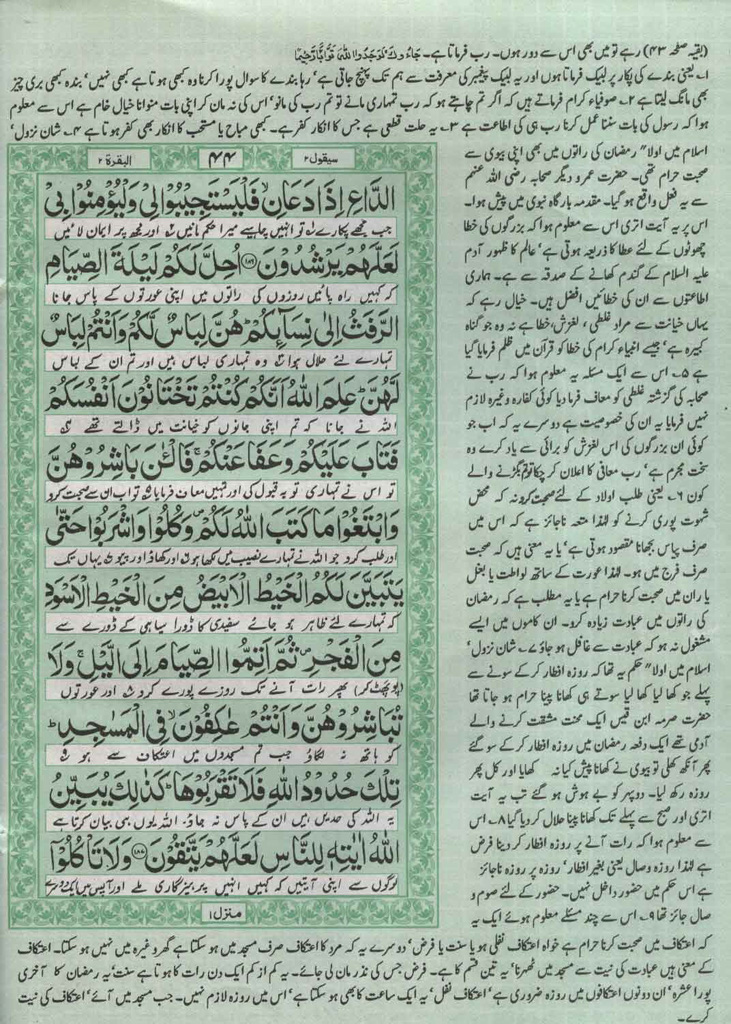 (بقیہ صفحہ ۴۳) رہے تو میں بھی اس سے دور ہوں۔ رب فرماتا ہے۔ جَاءُوكَ لَوَجَدُوا اللّٰهَ تَوَّابًا رَّحِيْمًا
۱۔ یعنی بندے کی پکار پر لبیک فرماتا ہوں اور یہ لبیک پیغمبر کی معرفت سے ہم تک پہنچ جاتی ہے' رہا بندے کا سوال پورا کرنا وہ کبھی ہوتا ہے کبھی نہیں' بندہ کبھی بری چیز
بھی مانگ لیتا ہے ۲۔ صوفیاء کرام فرماتے ہیں کہ اگر تم چاہتے ہو کہ رب تمہاری مانے تو تم رب کی مانو' اس کی نہ مان کر اپنی بات منوانا خیال خام ہے اس سے معلوم
ہوا کہ رسول کی بات سننا عمل کرنا رب ہی کی اطاعت ہے ۳۔ یہ حلت قطعی ہے جس کا انکار کفر ہے۔ کبھی مباح یا مستحب کا انکار بھی کفر ہوتا ہے ۴۔ شان نزول'
اسلام میں اولا" رمضان کی راتوں میں بھی اپنی بیوی سے
صحبت حرام تھی۔ حضرت عمر و دیگر صحابہ رضی اللہ عنہم
سے یہ فعل واقع ہو گیا۔ مقدمہ بارگاہ نبوی میں پیش ہوا۔
اس پر یہ آیت اتری اس سے معلوم ہوا کہ بزرگوں کی خطا
چھوٹوں کے لئے عطا کا ذریعہ ہوتی ہے' عالم کا ظہور آدم
علیہ السلام کے گندم کھانے کے صدقہ سے ہے۔ ہماری
اطاعتوں سے ان کی خطائیں افضل ہیں۔ خیال رہے کہ
یہاں خیانت سے مراد غلطی' لغزش' خطا ہے نہ وہ جو گناہ
کبیرہ ہے' جیسے انبیاء کرام کی خطا کو قرآن میں ظلم فرمایا گیا
ہے ۵۔ اس سے ایک مسئلہ یہ معلوم ہوا کہ رب نے
صحابہ کی گزشتہ غلطی کو معاف فرما دیا کوئی کفارہ وغیرہ لازم
نہیں فرمایا یہ ان کی خصوصیت ہے دوسرے یہ کہ اب جو
کوئی ان بزرگوں کی اس لغزش کو برائی سے یاد کرے وہ
سخت مجرم ہے' رب معافی کا اعلان کر چکا تو تم بگڑنے والے
کون ۶۔ یعنی طلب اولاد کے لئے صحبت کرو نہ کہ محض
شہوت پوری کرنے کو لہٰذا متعہ ناجائز ہے کہ اس میں
صرف پیاس بجھانا مقصود ہوتی ہے' یا یہ معنی ہیں کہ صحبت
صرف فرج میں ہو۔ لہٰذا عورت کے ساتھ لواطت یا بغل
یا ران میں صحبت کرنا حرام ہے یا یہ مطلب ہے کہ رمضان
کی راتوں میں عبادت زیادہ کرو۔ ان کاموں میں ایسے
مشغول نہ ہو کہ عبادت سے غافل ہو جاؤ ۷۔ شان نزول'
اسلام میں اولا" حکم یہ تھا کہ روزہ افطار کر کے سونے سے
پہلے جو کھا لیا کھا لیا سوتے ہی کھانا پینا حرام ہو جاتا تھا
حضرت صرمہ ابن قیس ایک محنت مشقت کرنے والے
آدمی تھے ایک دفعہ رمضان میں روزہ افطار کر کے سو گئے
پھر آنکھ کھلی تو بیوی نے کھانا پیش کیا نہ کھایا اور کل پھر
روزہ رکھ لیا۔ دوپہر کو بے ہوش ہو گئے تب یہ آیت
اتری اور صبح سے پہلے تک کھانا پینا حلال کر دیا گیا ۸۔ اس
سے معلوم ہوا کہ رات آنے پر روزہ افطار کر دینا فرض
ہے لہٰذا روزہ وصال یعنی بغیر افطار' روزہ پر روزہ ناجائز
ہے اس حکم میں حضور داخل نہیں۔ حضور کے لئے صوم و
صال جائز تھا ۹۔ اس سے چند مسئلے معلوم ہوئے ایک یہ
کہ اعتکاف میں صحبت کرنا حرام ہے خواہ اعتکاف نفلی ہو یا سنت یا فرض' دوسرے یہ کہ مرد کا اعتکاف صرف مسجد میں ہو سکتا ہے گھر وغیرہ میں نہیں ہو سکتا۔ اعتکاف
کے معنی ہیں عبادت کی نیت سے مسجد میں ٹھہرنا' یہ تین قسم کا ہے۔ فرض جس کی نذر مان لی جائے۔ یہ کم از کم ایک دن رات کا ہوتا ہے سنت' یہ رمضان کا آخری
پورا عشرہ' ان دونوں اعتکافوں میں روزہ ضروری ہے' اعتکاف نفل' یہ ایک ساعت کا بھی ہو سکتا ہے' اس میں روزہ لازم نہیں۔ جب مسجد میں آئے' اعتکاف کی نیت
کرے۔
سیقول ۲ ۴۴ البقرۃ ۲
الدَّاعِ اِذَا دَعَانِ فَلْيَسْتَجِيْبُوْا لِيْ وَلْيُؤْمِنُوْا بِيْ
جب مجھے پکارے تو انہیں چاہیے میرا حکم مانیں اور مجھ پر ایمان لائیں
لَعَلَّهُمْ يَرْشُدُوْنَ ۝۱۸۶ اُحِلَّ لَكُمْ لَيْلَةَ الصِّيَامِ
کہ کہیں راہ پائیں روزوں کی راتوں میں اپنی عورتوں کے پاس جانا
الرَّفَثُ اِلٰى نِسَآىِٕكُمْ هُنَّ لِبَاسٌ لَّكُمْ وَاَنْتُمْ لِبَاسٌ
تمہارے لئے حلال ہوا وہ تمہاری لباس ہیں اور تم ان کے لباس
لَّهُنَّ عَلِمَ اللّٰهُ اَنَّكُمْ كُنْتُمْ تَخْتَانُوْنَ اَنْفُسَكُمْ
اللہ نے جانا کہ تم اپنی جانوں کو خیانت میں ڈالتے تھے
فَتَابَ عَلَيْكُمْ وَعَفَا عَنْكُمْ فَالْـٰٔنَ بَاشِرُوْهُنَّ
تو اس نے تمہاری توبہ قبول کی اور تمہیں معاف فرمایا تو اب ان سے صحبت کرو
وَابْتَغُوْا مَا كَتَبَ اللّٰهُ لَكُمْ وَكُلُوْا وَاشْرَبُوْا حَتّٰى
اور طلب کرو جو اللہ نے تمہارے نصیب میں لکھا ہو اور کھاؤ اور پیو یہاں تک
يَتَبَيَّنَ لَكُمُ الْخَيْطُ الْاَبْيَضُ مِنَ الْخَيْطِ الْاَسْوَدِ
کہ تمہارے لئے ظاہر ہو جائے سفیدی کا ڈورا سیاہی کے ڈورے سے
مِنَ الْفَجْرِ ثُمَّ اَتِمُّوا الصِّيَامَ اِلَى الَّيْلِ وَلَا
(پوپھٹ کر) پھر رات آنے تک روزے پورے کرو اور عورتوں
تُبَاشِرُوْهُنَّ وَاَنْتُمْ عٰكِفُوْنَ فِى الْمَسٰجِدِ
کو ہاتھ نہ لگاؤ جب تم مسجدوں میں اعتکاف سے ہو
تِلْكَ حُدُوْدُ اللّٰهِ فَلَا تَقْرَبُوْهَا كَذٰلِكَ يُبَيِّنُ
یہ اللہ کی حدیں ہیں ان کے پاس نہ جاؤ۔ اللہ یوں ہی بیان کرتا ہے
اللّٰهُ اٰيٰتِهٖ لِلنَّاسِ لَعَلَّهُمْ يَتَّقُوْنَ ۝۱۸۷ وَلَا تَاْكُلُوْٓا
لوگوں سے اپنی آیتیں کہ کہیں انہیں پرہیزگاری ملے اور آپس میں ایک دوسرے
منزل ۱